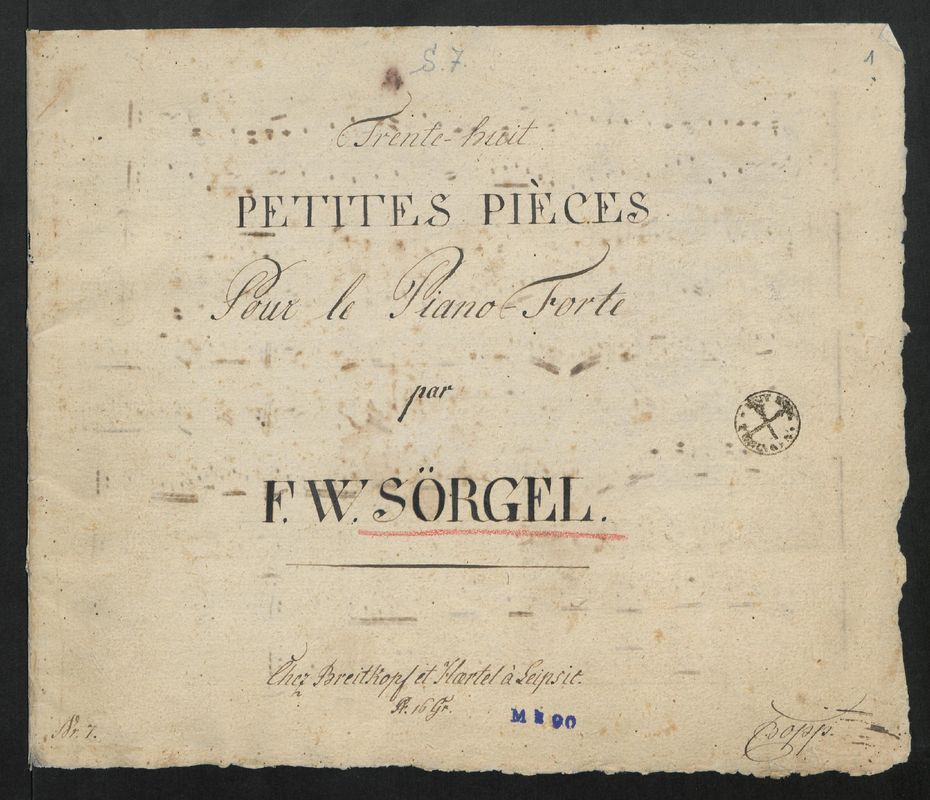 S. 7.
1
Trente-huit
PETITES PIÈCES
Pour le Piano-Forte
par
F. W. SÖRGEL.
Chez Breitkopf et Hærtel à Leipsic.
Pr. 16 Gr.
M 90
Nr. 7.
Bopp.